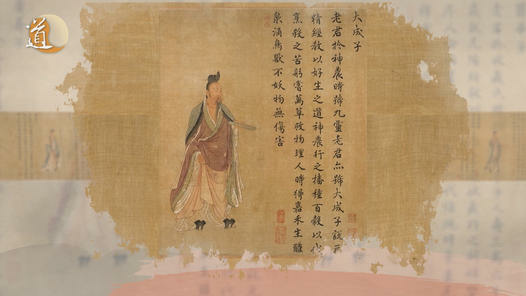 道
大成子
老君於神農時號九靈老君亦號大成子說元
精經教以好生之道神農行之播種百穀以代
烹殺之苦躬嘗萬草救物理人時得嘉禾生醴
泉涌鳥獸不妖物無傷害